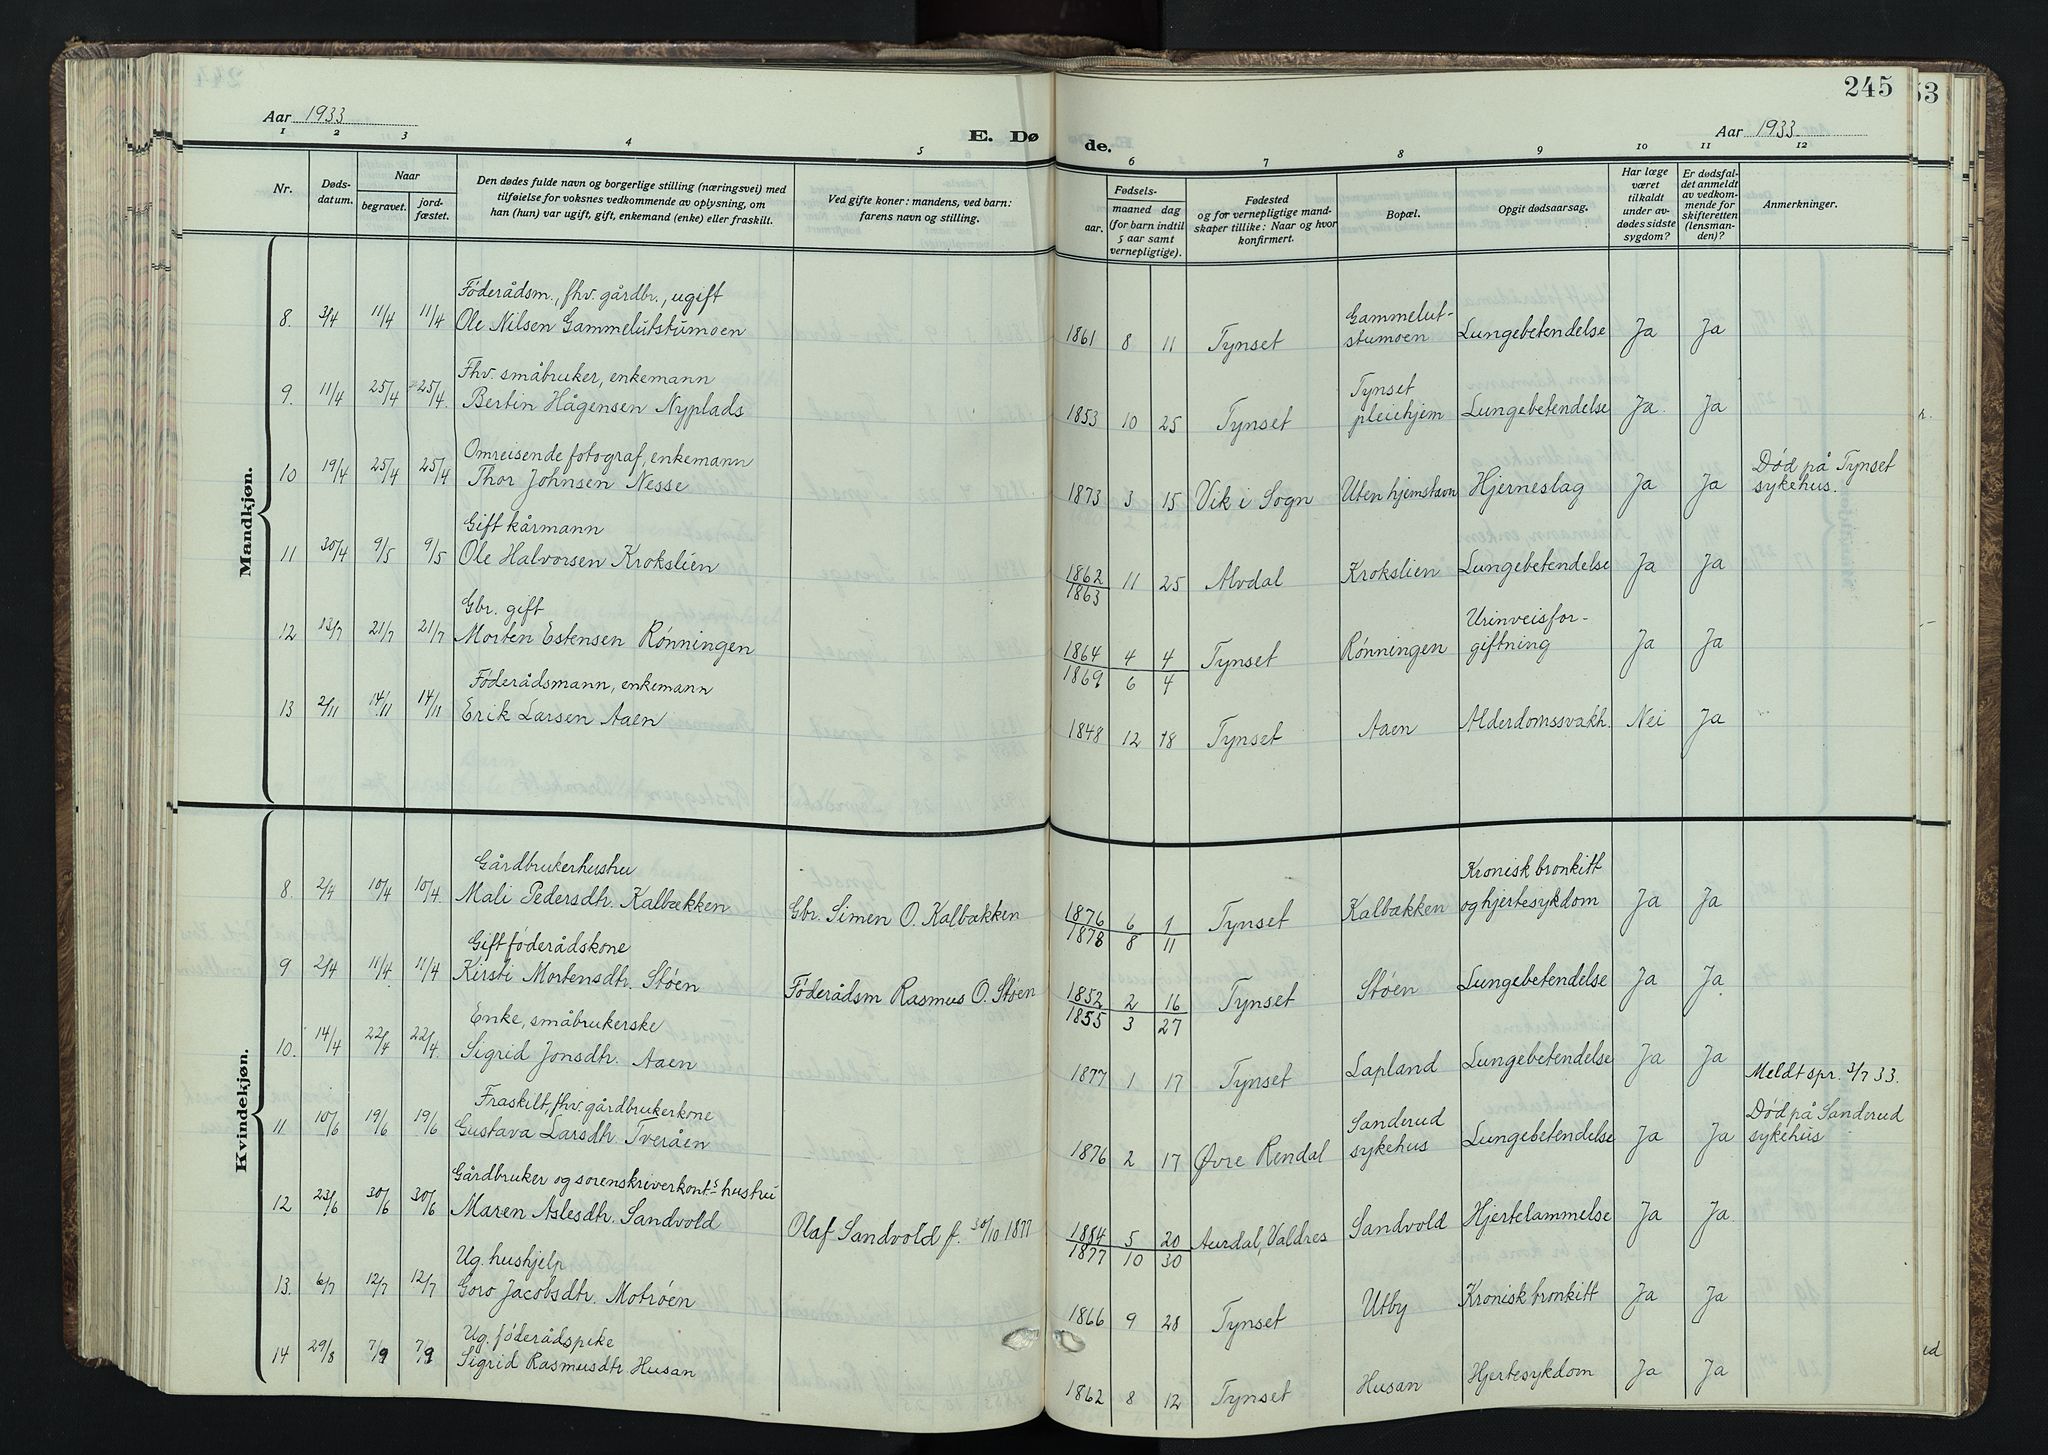 245
53
Aar 1933
E. Dø
de.
Aar 1933
1 2 3 4 5 6 7 8 9 10 11 12
Nr.
Døds-
datum.
Naar
begravet.
jord-
fæstet.
Den dødes fulde navn og borgerlige stilling (næringsvei) med
tilføielse for voksnes vedkommende av oplysning, om
han (hun) var ugift, gift, enkemand (enke) eller fraskilt.
Ved gifte koner: mandens, ved barn:
farens navn og stilling.
Fødsels-
aar.
maaned dag
(for barn indtil
5 aar samt
vernepligtige).
Fødested
og for vernepligtige mand-
skaper tillike: Naar og hvor
konfirmert.
Bopæl.
Opgit dødsaarsag.
Har læge
været
tilkaldt
under av-
dødes sidste
sygdom?
Er dødsfal-
det anmeldt
av vedkom-
mende for
skifteretten
(lensman-
den)?
Anmerkninger.
Mandkjøn.
Føderådsm., fhv. gårdbr., ugift
8. 3/4 11/4 11/4 Ole Nilsen Gammelutstumoen 1861 8 11 Tynset Gammelut-
stumoen Lungebetendelse Ja Ja
Fhv. småbruker, enkemann
9. 11/4 25/4 25/4 Bertin Hågensen Nyplads 1853 10 25 Tynset Tynset
pleiehjem Lungebetendelse Ja Ja
Omreisende fotograf, enkemann
10 19/4 25/4 25/4 Thor Johnsen Nesse 1873 3 15 Vik i Sogn Uten hjemstavn Hjerneslag Ja Ja Død på Tynset
sykehus.
Gift kårmann
11 30/4 9/5 9/5 Ole Halvorsen Krokslien 1862 11 25 Alvdal Krokslien Lungebetendelse Ja Ja
1863
Gbr. gift
12 13/7 21/7 21/7 Morten Estensen Rønningen 1864 4 4 Tynset Rønningen Urinveisfor-
giftning Ja Ja
1869 6 4
Føderådsmann, enkemann
13 2/11 14/11 14/11 Erik Larsen Aaen 1848 12 18 Tynset Aaen Alderdomssvakh. Nei Ja
Kvindekjøn.
Gårdbrukerhustru
8 2/4 10/4 10/4 Mali Pedersdtr. Kalbækken Gbr. Simen O. Kalbækken 1876 6 9 Tynset Kalbækken Kronisk bronkitt
og hjertesykdom Ja Ja
1878 8 11
Gift føderådskone
9 2/4 11/4 11/4 Kirsti Mortensdtr. Støen Føderådsm Rasmus O. Støen 1852 2 16 Tynset Støen Lungebetendelse Ja Ja
1855 3 27
Enke, småbrukerske
10. 14/4 22/4 22/4 Sigrid Jonsdtr. Aaen 1877 1 17 Tynset Lapland Lungebetendelse Ja Ja
Meldt spr. 3/7 33.
Fraskilt, fhv. gårdbrukerkone
11 10/6 19/6 19/6 Gustava Larsdtr. Tveråen 1876 2 17 Øvre Rendal Sanderud
sykehus Lungebetendelse Ja Ja Død på Sanderud
sykehus
Gårdbruker og sorenskriverkonts hustru
12 23/6 30/6 30/6 Maren Aslesdtr. Sandvold Olaf Sandvold f. 30/10 1877 1884 5 20 Aurdal, Valdres Sandvold Hjertelammelse Ja Ja
1877 10 30
Ug. hushjelp
13. 6/7 12/7 12/7 Goro Jacobsdtr. Motrøen 1866 9 28 Tynset Utby Kronisk bronkitt Ja Ja
Ug. føderådspike
14 29/8 7/9 7/9 Sigrid Rasmusdtr. Husan 1862 8 12 Tynset Husan Hjertesykdom Ja Ja